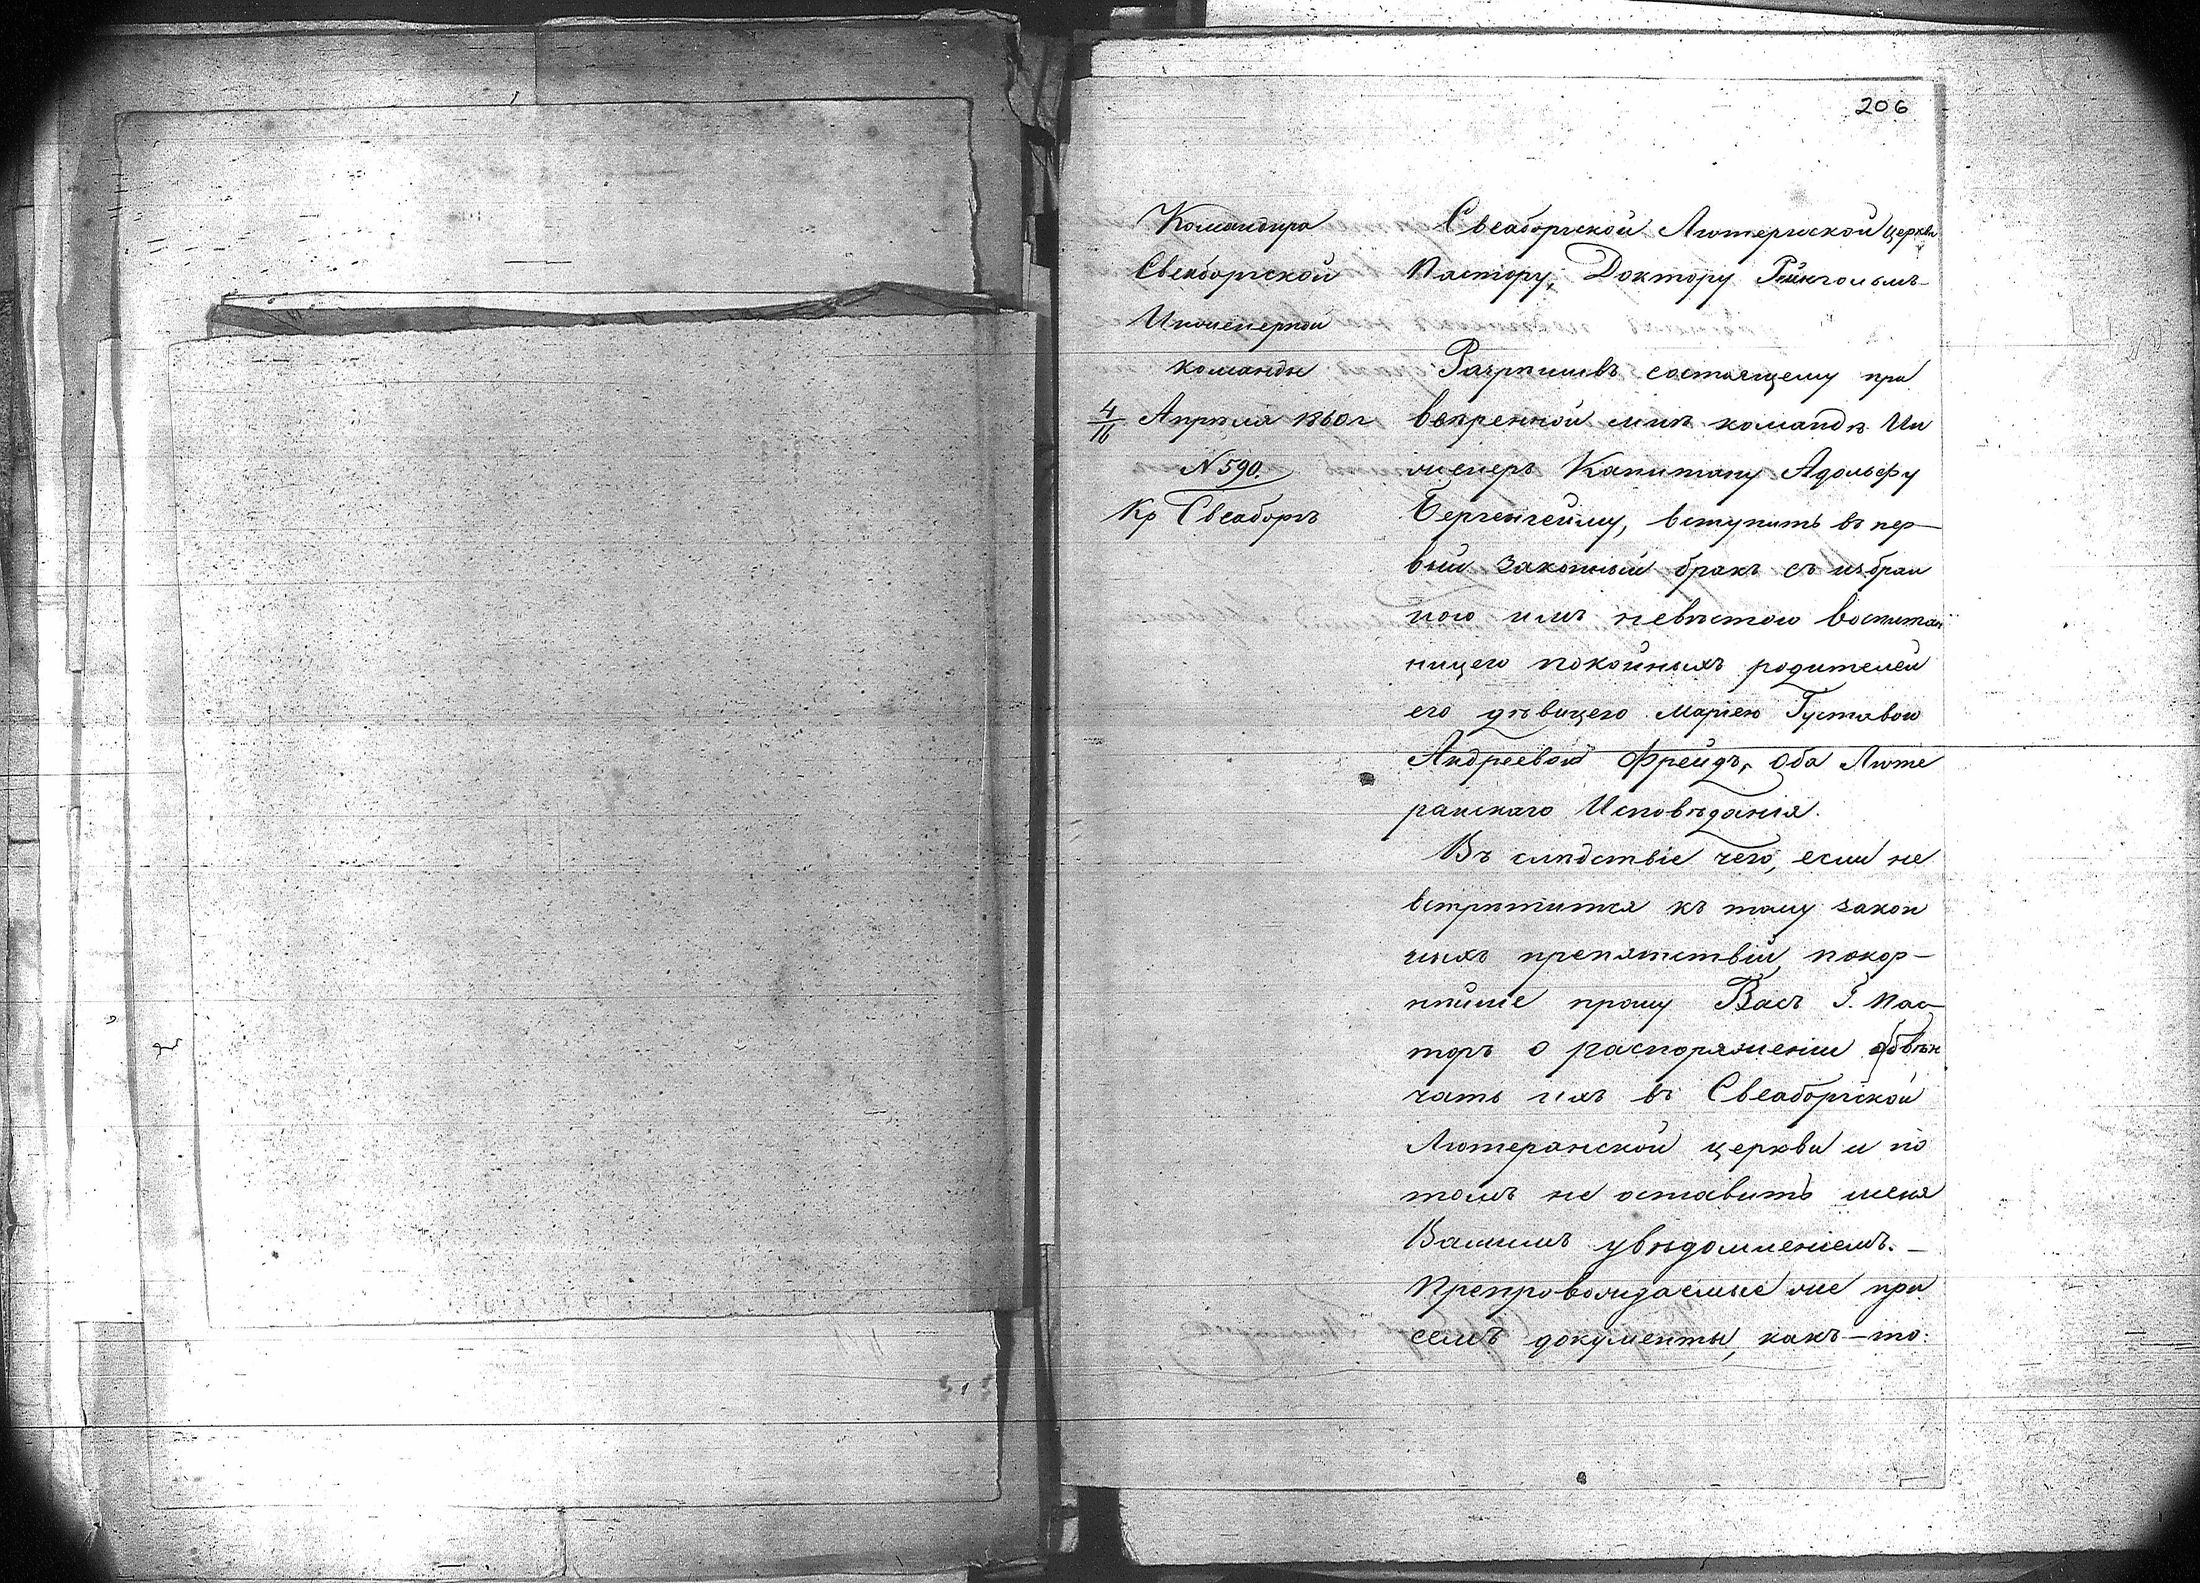 206
Командира
Свеаборгской
Инженерной
команды
4/16 Апрѣля 1860 г
N 590.
Кр Свеаборгъ
Свеаборгской Лютерской церкви
Пастору, Доктору Рингольмъ
Разрѣшивъ состоящему при
ввѣренной мнѣ командѣ Ин
женеръ Капитану Адольфу
Бергенгейму, вступить въ пер-
вый законный бракъ съ избран
ною имъ невѣстою воспитан
ницею покойныхъ родителей
его дѣвицею Маріею Густавою
Андреевой Фрейдъ, оба Люте
ранскаго Исповѣданія.
Въ слѣдствіе чего, если не
встрѣтится къ тому закон
ныхъ препятствій, покор-
нѣйше прошу Васъ Г. Пас-
торъ о распоряженіи обвѣн
чать ихъ въ Свеаборгской
Лютеранской церкви и по
томъ не оставить меня
Вашимъ увѣдомленіемъ. –
Препровождаемые же при
семъ документы, какъ-то: